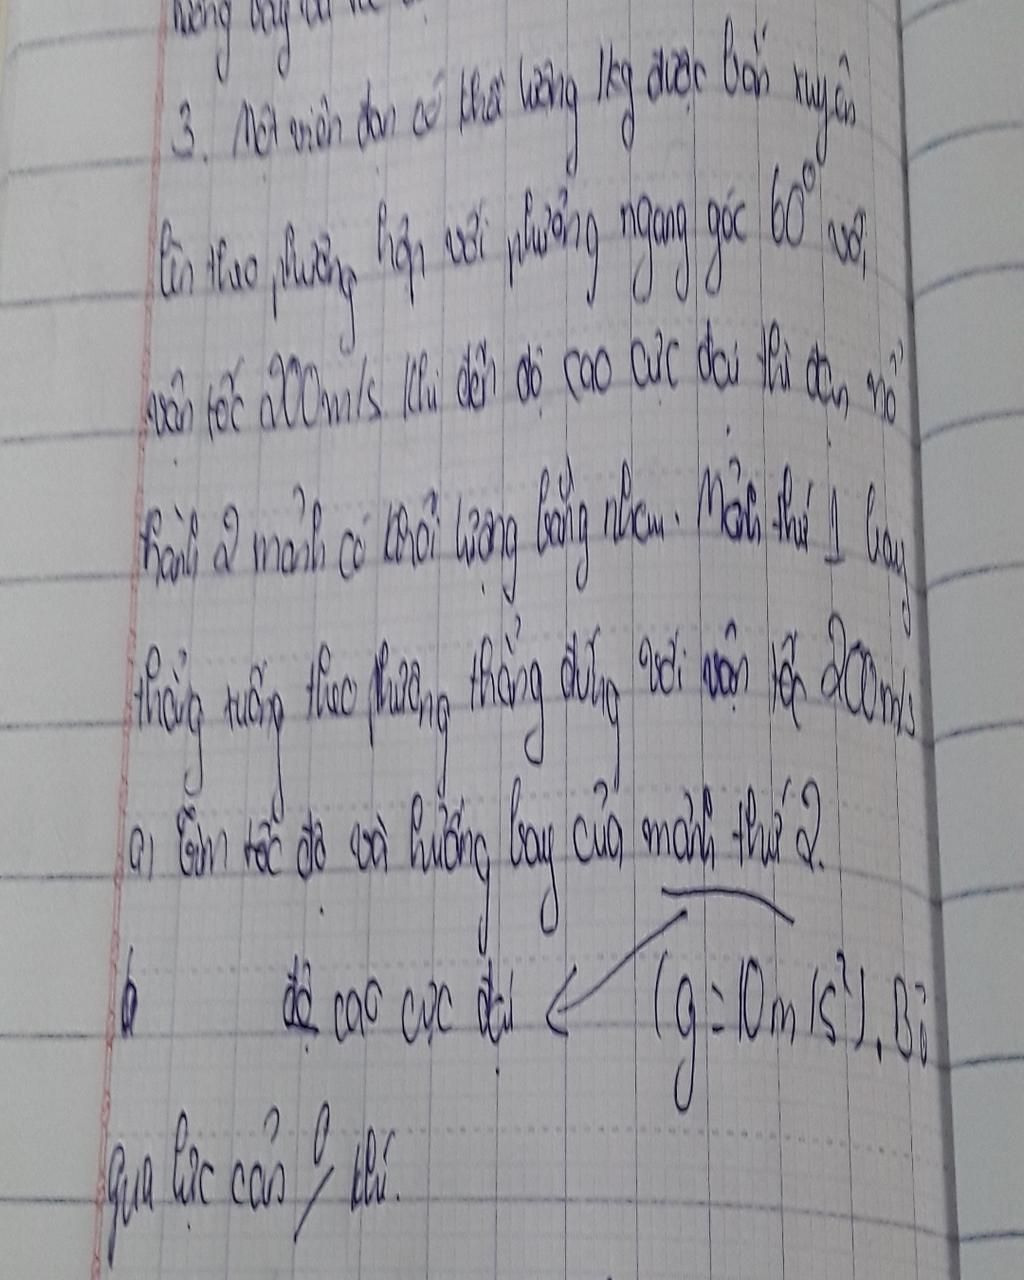 3. Một viên đạn có khối lượng 1kg được bắn xuyên
lên theo phương hợp với phương ngang góc 60° với
vận tốc 200m/s khi đến độ cao cực đại thì đạn nổ
thành 2 mảnh có khối lượng bằng nhau. Mảnh thứ 1 bay
thẳng xuống theo phương thẳng đứng với vận tốc 200m/s
a, tìm tốc độ và hướng bay của mảnh thứ 2.
b độ cao cực đại (g=10m/s²). Bỏ
qua lực cản k/khí.